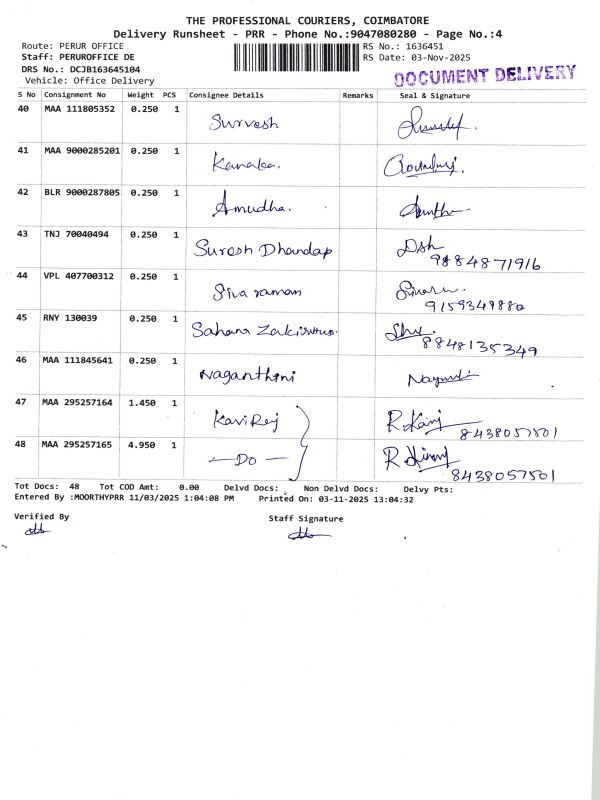 THE PROFESSIONAL COURIERS, COIMBATORE
Delivery Runsheet - PRR - Phone No.:9047080280 - Page No.:4
Route: PERUR OFFICE RS No.: 1636451
Staff: PERUROFFICE DE RS Date: 03-Nov-2025
DRS No.: DCJB163645104
Vehicle: Office Delivery
DOCUMENT DELIVERY
S No Consignment No Weight PCS Consignee Details Remarks Seal & Signature
40 MAA 111805352 0.250 1 Survesh
41 MAA 9000285201 0.250 1 Kanaka.
42 BLR 9000287805 0.250 1 Amudha.
43 TNJ 70040494 0.250 1 Suresh Dhandap Dsh
9884871916
44 VPL 407700312 0.250 1 Siva raman
9159349880
45 RNY 130039 0.250 1 Sahana
8848135349
46 MAA 111845641 0.250 1 Naganthini
47 MAA 295257164 1.450 1 KaviRaj
8438057501
48 MAA 295257165 4.950 1 — Do —
8438057501
Tot Docs: 48 Tot COD Amt: 0.00 Delvd Docs: Non Delvd Docs: Delvy Pts:
Entered By :MOORTHYPRR 11/03/2025 1:04:08 PM Printed On: 03-11-2025 13:04:32
Verified By Staff Signature